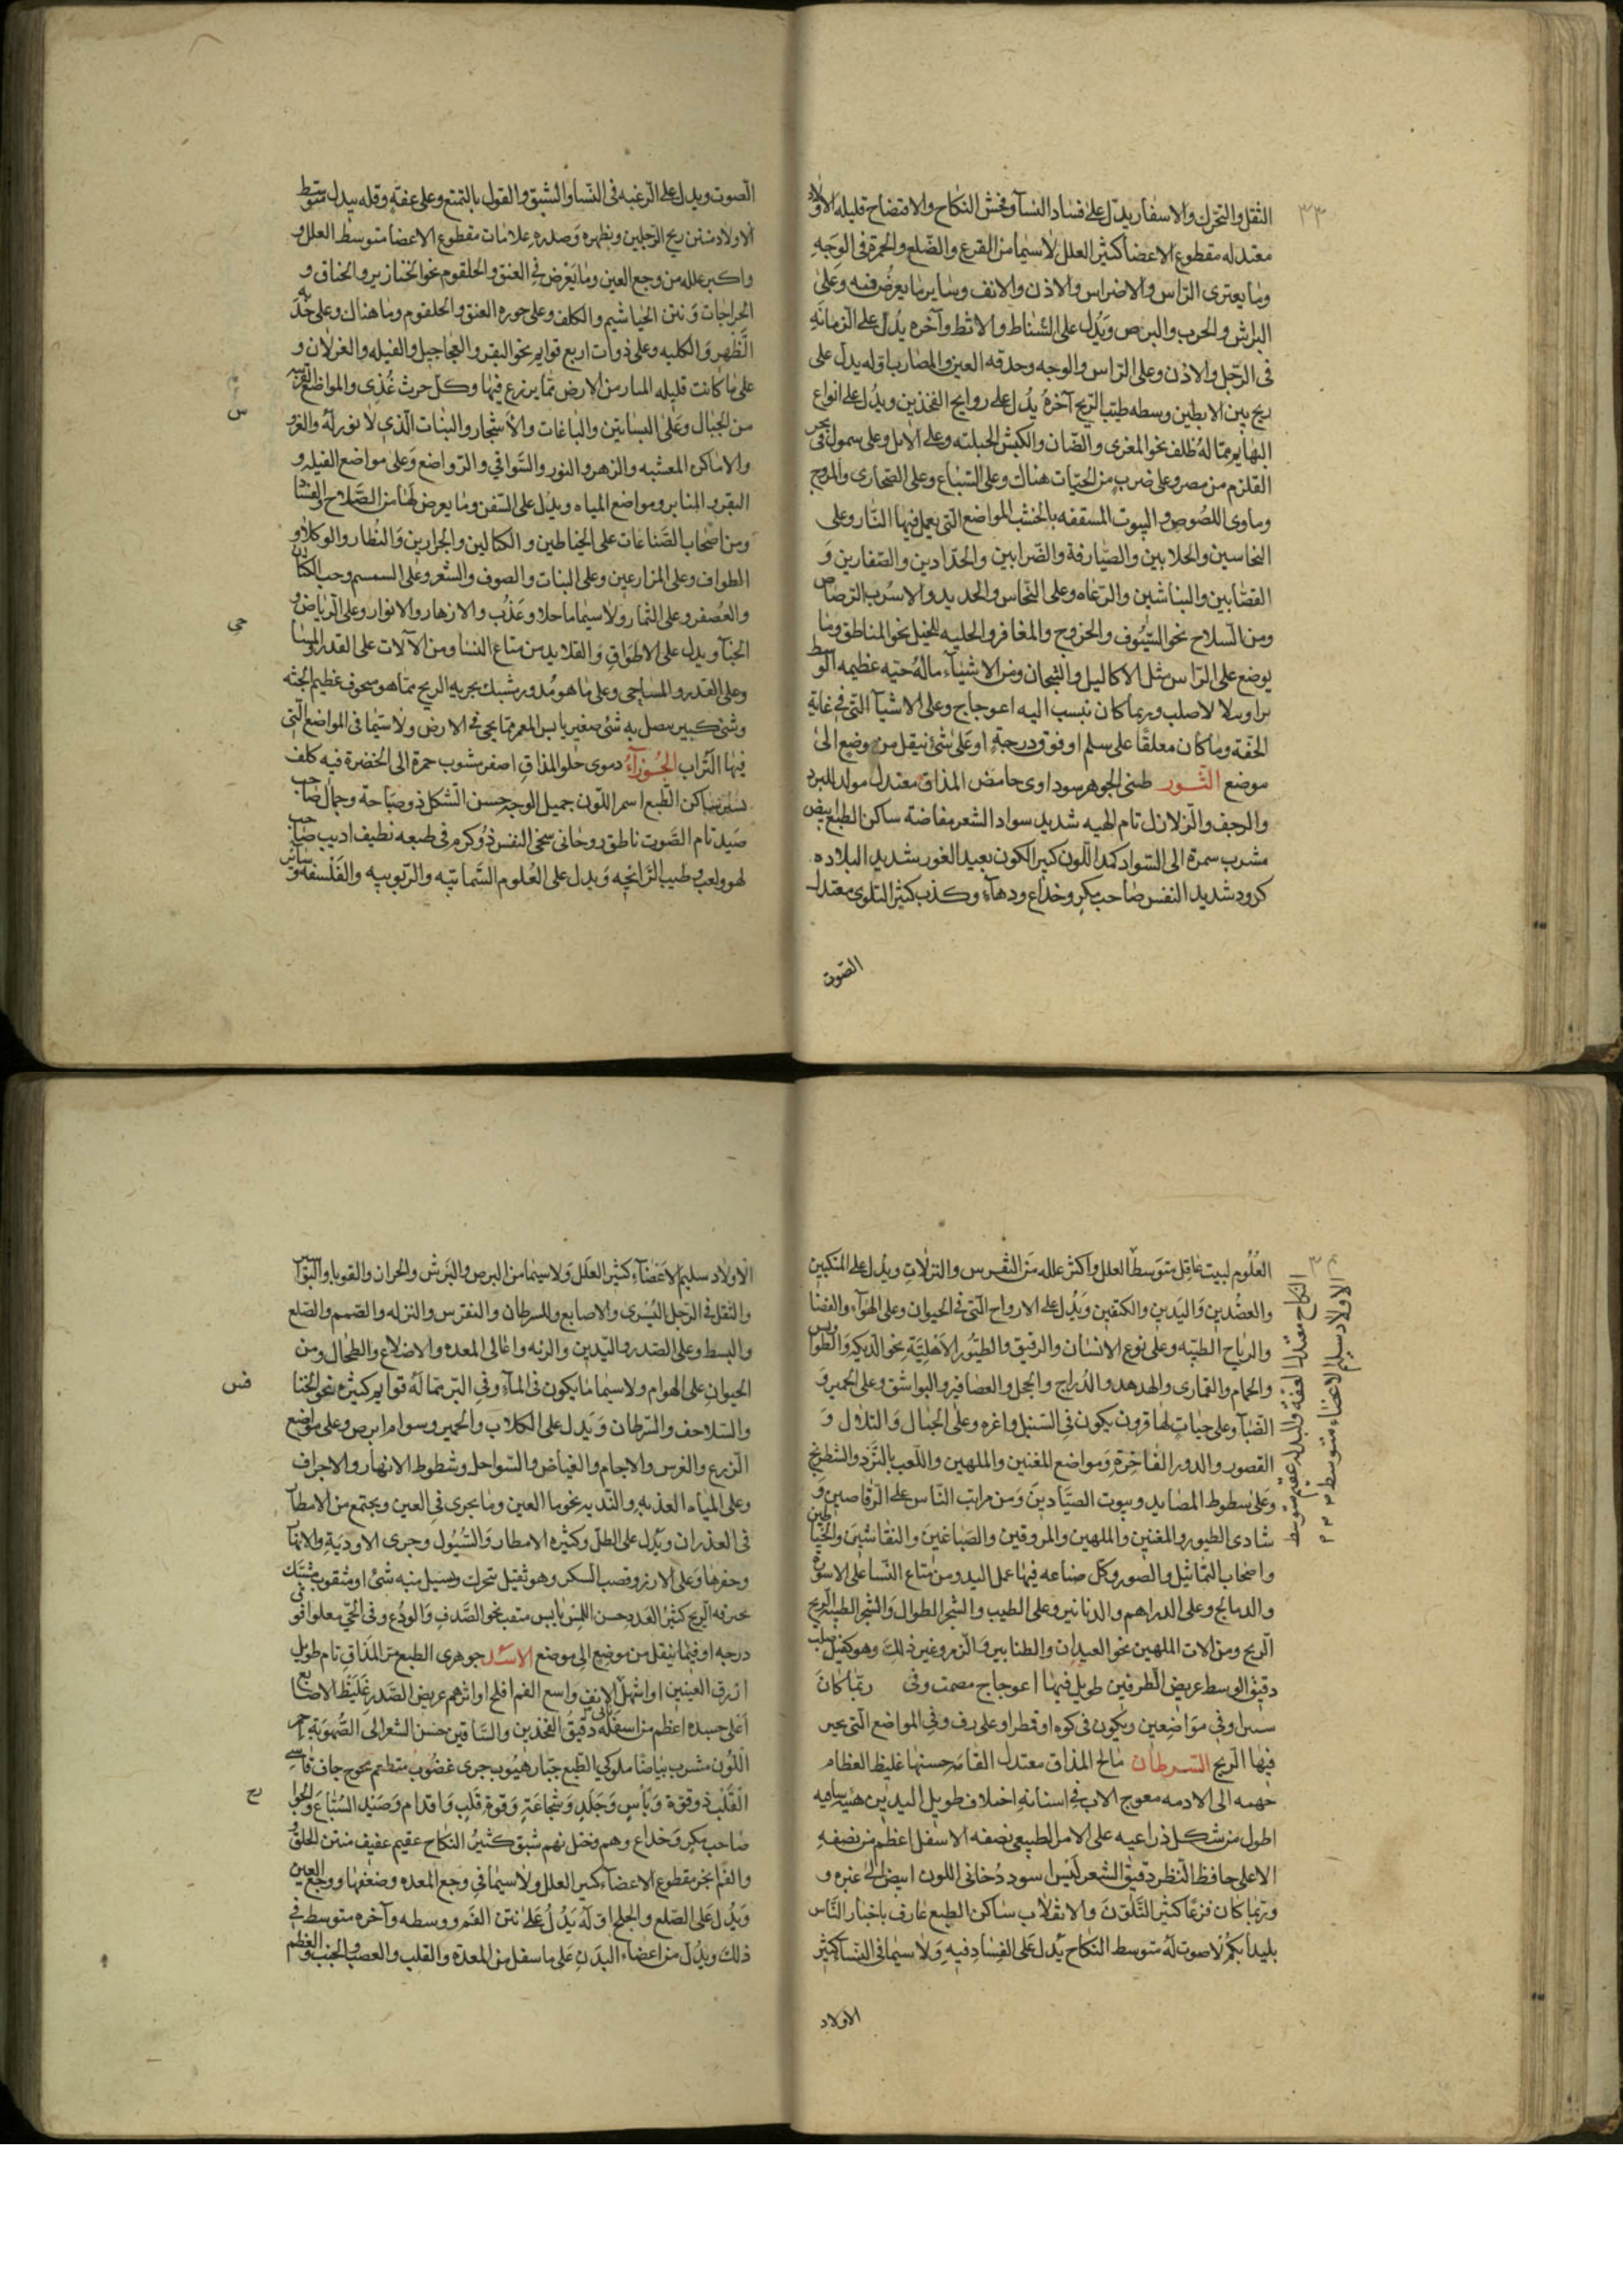 ٣٣
الثقل والتحرك والاسفار يدل على فساد النسآ وفحش النكاح والافتضاح قليله الاولاد
معتدله مقطوع الاعضا كثير العلل لا سيما من القرع والصلع والحمرة فى الوجه
وما يعترى الراس والاضراس والاذن والانف وساير ما يعرض فيه وعلى
البرش والجرب والبرص ويدل على الشناط والاثط وآخره يدل على الزمانه
فى الرجل والاذن وعلى الراس والوجه وحدقه العين والمضارب اوله يدل على
ريح بين الابطين وسطه طيب الريح آخره يدل على روايح الفخذين ويدل على انواع
البهايم مما له ظلف نحو المعزى والضان والكبش الجبليه وعلى الابل وعلى سمول بحر
القلزم من مصر وعلى ضرب من الحيات هناك وعلى السباع وعلى الصحارى والمروج
وماوى اللصوص والبيوت المسقفه بالخشب المواضع التى يعمل فيها النار وعلى
النحاسين والحلابين والصيارفة والضرابين والحدادين والصفارين و
القصابين والنباشين والرعاه وعلى النحاس والحديد والاسرب الرصاص
ومن السلاح نحو السيوف والخروج والمغافر والحليه للخيل نحو المناطق وما
يوضع على الراس مثل الاكاليل والتيجان ومن الاشيآء ماله حيه عظيمه الوسط
لاصلب وربما كان نسب اليه اعوجاج وعلى الاشيآ التى فى غاية
الخفة وما كان معلقا على سلم او فوق درجة او على شئ نيقل من وضع الى
موضع الثور طينى الجوهر سوداوى حامض المذاق معتدل مولد للبرد
والرجف والزلازل تام الهيه شديد سواد الشعر مفاضة ساكن الطبع ابيض
مشرب سمرة الى السواد كمد اللون كبير الكون بعيد الغور شديد البلاده
كرود شديد النفس صاحب مكر وخداع ودهآء وكذب كثير التلوى معتدل
الصوت
الصوت ويدل على الرغبه فى النسا والشبق والقول بالتمتع وعلى عفة وقله يدل متوسط
الاولاد منتن ريح الرجلين وبظهره وصدره علامات مقطوع الاعضا متوسط العلل و
واكبر علله من وجع العين وما يعرض فى العنق والحلقوم نحو الخنازير والخناق و
الخراجات ونتن الخياشيم والكلف وعلى حوره العنق والحلقوم وما هناك وعلى حدبه
الظهر والكليه وعلى ذوات اربع قوايم نحو البقر والعجاجيل والفيله والغزلان و
على ما كانت قليله المسار من الارض مما يزرع فيها وكل حرث غذى والمواضع القريبه
من الجبال وعلى البساتين والباغات والاشجار والنبات الذى لا نور له والغرو
والاماكن المعشبه والزهر والنور والسواقى والرواضع وعلى مواضع الفيله و
البقر والمنابر ومواضع المياه ويدل على السفن وما يعرض لها من الصلاح والفسا
ومن اصحاب الصناعات على الخياطين والكتالين والجرارين والنظار والوكلاو
الطواف وعلى المزارعين وعلى النبات والصوف والشعر وعلى السمسم وحب الكتان
والعصفر وعلى الثمار ولا سيما ما حلا وعذب والازهار والانوار وعلى الرياض و
الحنآ ويدل على الاطواق والقلايد من متاع النسا ومن الآلات على القدر
وعلى القدر والمساحى وعلى ما هو مدور مشبك يجريه الريح مما هو مجوف عظيم الجثه
وشئ كبير يصل به شئ صغير يابس مما يجى فى الارض ولا سيما فى المواضع التى
فيها التراب الجوزآء دموى حلو المذاق اصفر مشوب حمرة الى الخضرة فيه كلف
ساكن الطبع اسمر اللون جميل الوجه حسن الشكل ذو صباحة وجمال صاحب
صيد تام الصوت ناطق روحانى سخى النفس ذو كرم فى طبعه نظيف اديب صاحب
لهو ولعب وطيب الرايحه ويدل على العلوم السماتيه والربوبيه والفلسفه وساير
س
حى
٣٤
العلوم لبيت عاقل متوسط العلل واكثر علله من النقرس والنزلات ويدل على المنكبين
والعضدين واليدين والكتفين ويدل على الارواح التى فى الحيوان وعلى الهوآء والفضا
والرياح الطيبه وعلى نوع الانسان والرقيق والطيور الاهليّة نحو الديكه والطواويس
والحمام والقمارى والهدهد والدراج والحجل والعصافير والبواشق وعلى الحمير و
الضبآ وعلى حيات لها قرون يكون فى السنبل واغره وعلى الجبال والتلال و
القصور والدور الفاخرة ومواضع المغنين والملهين واللعب بالنرد والشطرنج
وعلى سطوط المصايد وبيوت الصيادين ومن مراتب الناس على الرقاصين و
شادى الطيور والمغنين والملهين والمروقين والصباغين والنقاشين والخياطين
واصحاب التماثيل والصور وكل صناعه فيها عمل اليد ومن متاع النسا على الاسورة
والدمالج وعلى الدراهم والدنانير وعلى الطيب والشجر الطوال والشجر الطيبه الريح
الريح ومن الات الملهين نحو العيدان والطنابير والزمر وغير ذلك وهو كعنق صلب
دقيق الوسط عريض الطرفين طويل فيها اعوجاج مصمت وفى ربما كان
وفى مواضعين ويكون فى كوه او قطر او على رف وفى المواضع التى يحير
فيها الريح السرطان مالح المذاق معتدل القامه حسنها غليظ العظام
جهمه الى الادمه معوج الاب فى اسنانه اختلاف طويل اليدين هيئه ساميه
اطول من شكل ذراعيه على الامر الطبيعى نصفه الاسفل اعظم من نصفه
الاعلى حافظ النظر دقيق الشعر ليس اسود دخانى اللون ابيض الى غبره و
وربما كان فزعا كثير التلون والانقلاب ساكن الطبع عارف باخبار الناس
بليدا بكم لا صوت له متوسط النكاح يدل على الفساد فيه ولا سيما فى النسا كثير
الاولاد
النكاح معتدل العفة والبدل عقيم متوسط
الاولاد سليم الاعضاء متوسط
الاولاد سليم الاعضآء كثير العلل ولا سيما من البرص والبرش والحران والقوبا والبوآسير
والثقل فى الرجل اليسرى والاصابع والسرطان والنقرس والنزله والصمم والصلع
والبسط وعلى الصدر والثديين والرئه واعالى المعده والاضلاع والطحال ومن
الحيوان على الهوام ولا سيما ما يكون فى المآء وفى البر مما له قوايم كثيره نحو الخنا
والسلاحف والسرطان ويدل على الكلاب والحمير وسوام ابرص وعلى مواضع
الزرع والغرس والاجام والغياض والسواحل وشطوط الانهار والاجراف
وعلى المياه العذبه والنديه نحو ما العين وما يجرى فى العين ويجتمع من الامطآ
فى الغدران ويدل على الطل وكثيره الامطار والسيول وجرى الاودية والانهآ
وحفرها وعلى الارز وقصب السكر وهو ثقيل تتحرك ويسيل منه شئ او مثقوب مشبك
الريح كثير العدد حسن اللبس يابس متعب نحو الصدف والودع وفى الحى معلوا فوق
درجه او فيما ينقل من موضع الى موضع الاسد جوهرى الطبع مر المذاق تام طويل
ازرق العينين او اشهل الانف واسع الفم افلج او اثرم عريض الصدر غليظ الاصابع
اعلى جسده اعظم من اسفله دقيق الفخذين والساقين حسن الشعر الى الصهوبة احمر
اللون مشرب بياضا ملوكى الطبع جبار هيوب جرى غضوب متطعم لحوح جاف قاسى
القلب ذو قوة وبأس وجلد وشجاعة وقوة قلب واقدام وصيد السباع والجوا
صاحب مكر وخداع وهم وختل نهم شبق كثير النكاح عقيم عفيف منتن الحلق و
والفم ابخر مقطوع الاعضآء كثير العلل ولا سيما فى وجع المعده وضعفها ووجع العين
ويدل على الصلع والجلح اوله يدل على نتن الفم ووسطه وآخره متوسط فى
ذلك ويدل من اعضاء البدن على ما سفل من المعدة والقلب والعصب والجنب والعظم
فس
ح